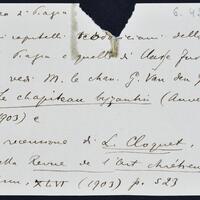 di Praga
6. 42
i capitelli teodosiani della
Praga e quelli di
vedi M. le chan. G. Van den
Le chapiteau byzantin (Anve
1903) e
recensione di L. Cloquet,
lla Revue de l'art chrétien
XLVI (1903) p. 523